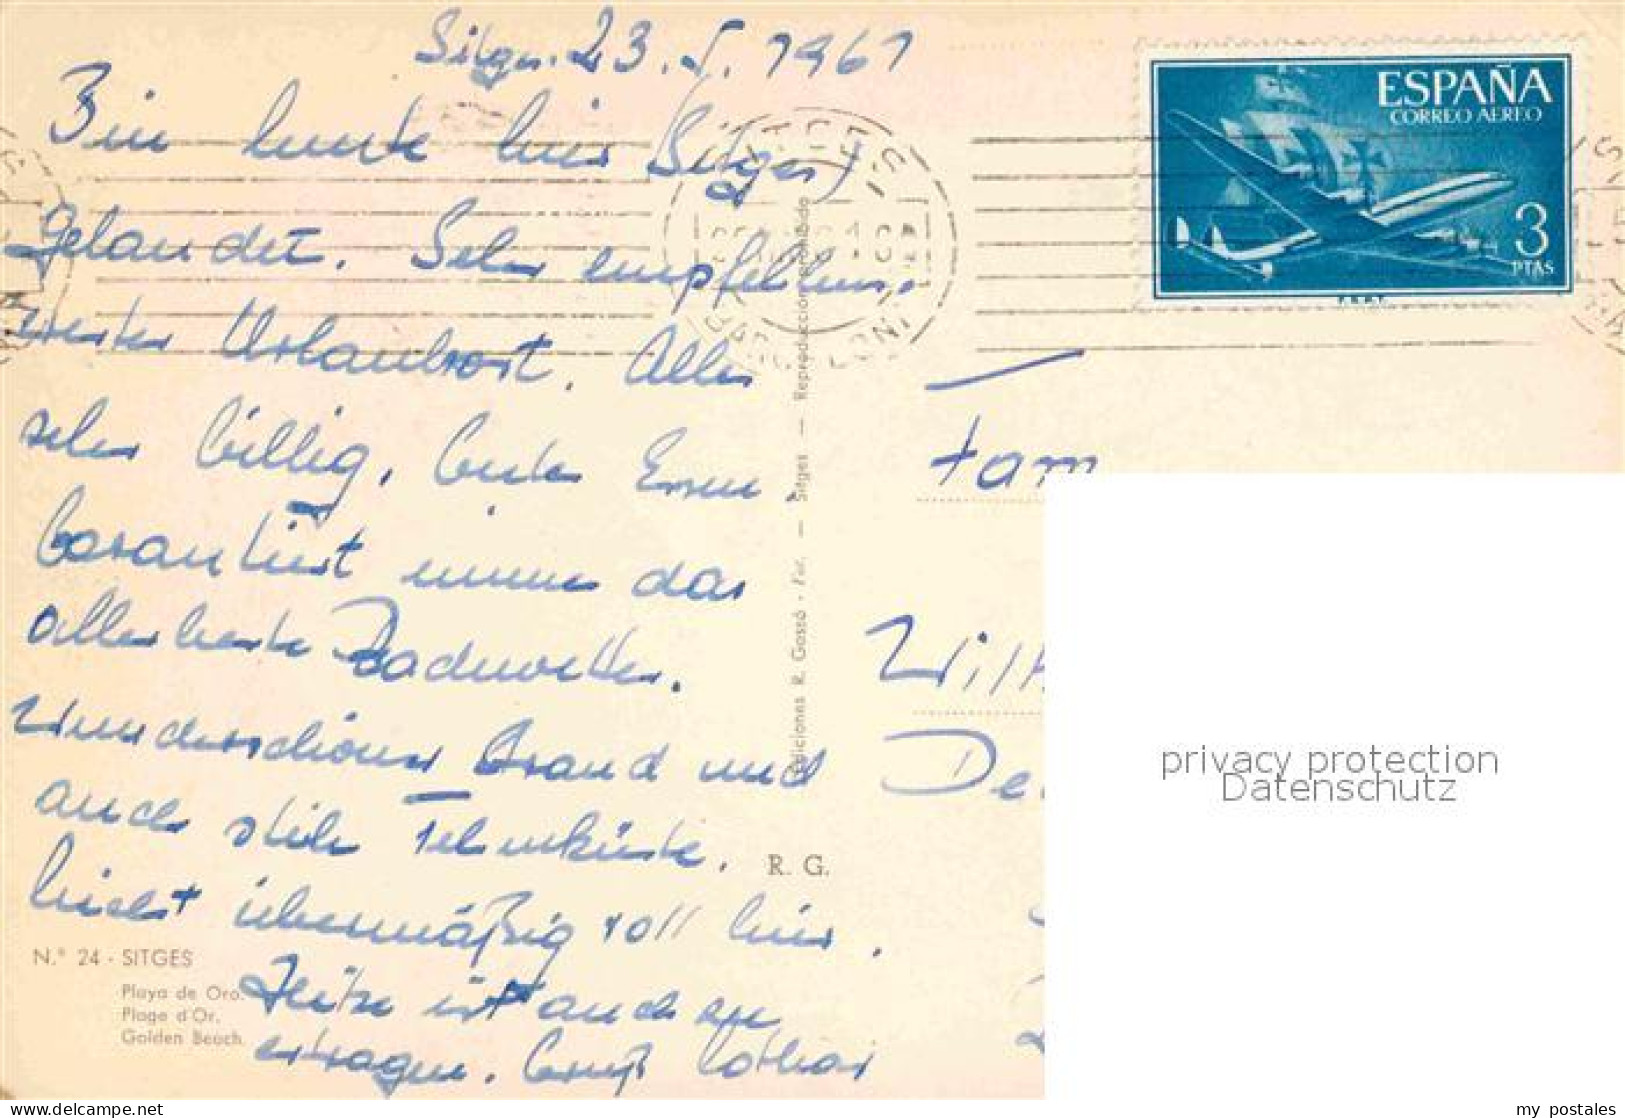 Sitges. 23. 5. 1961
Bin heute hier (Sitges)
gelandet. Sehr empfehlens-
werter Urlaubsort. Alles
sehr billig, beste Essen.
Garantiert immer das
allerbeste Badewetter.
Wunderschöner Strand und
auch steile Felsenküste.
Nicht übermäßig voll hier.
Hitze ist auch zu
ertragen. Gruß Lothar
ESPAÑA
CORREO AEREO
3
PTAS
F.N.M.T.
SITGES
BARCELONA
Fam
Wilh
De
Ediciones R. Gassó - Fot. — Sitges — Reproducción prohibido
R. G.
N.° 24 - SITGES
Playa de Oro.
Plage d'Or.
Golden Beach.
privacy protection
Datenschutz
my postales